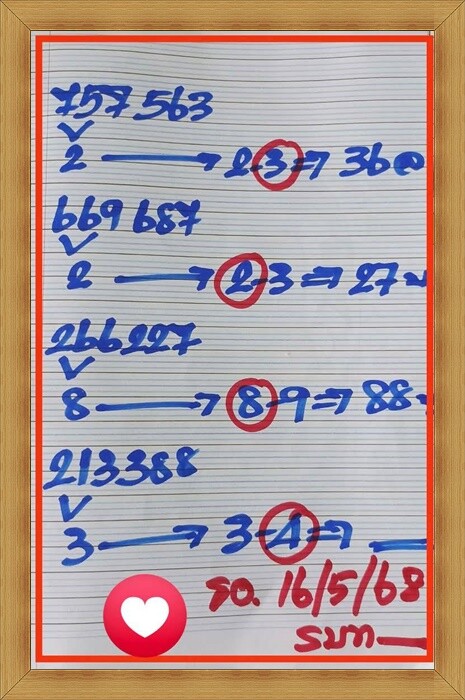 757563
2 → 2-3 ⇒ 36
669687
2 → 2-3 ⇒ 27
266227
8 → 8-9 ⇒ 88
213388
3 → 3-4 ⇒
รอ. 16/5/68